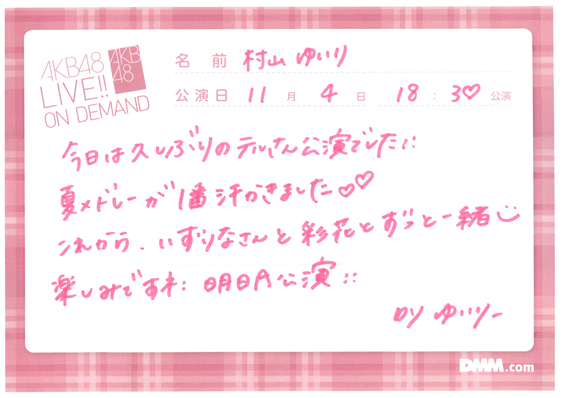 AKB48
LIVE!!
ON DEMAND
AKB
48
名 前 村山 ゆいり
公演日 11 月 4 日 18 : 30 公演
今日は久しぶりのテルさん公演でした!!
夏メドレーが1番汗かきました♡♡
これから、いずりなさんと彩花とずっと一緒
楽しみですね! 明日A公演!!
ゆいりー
DMM.com